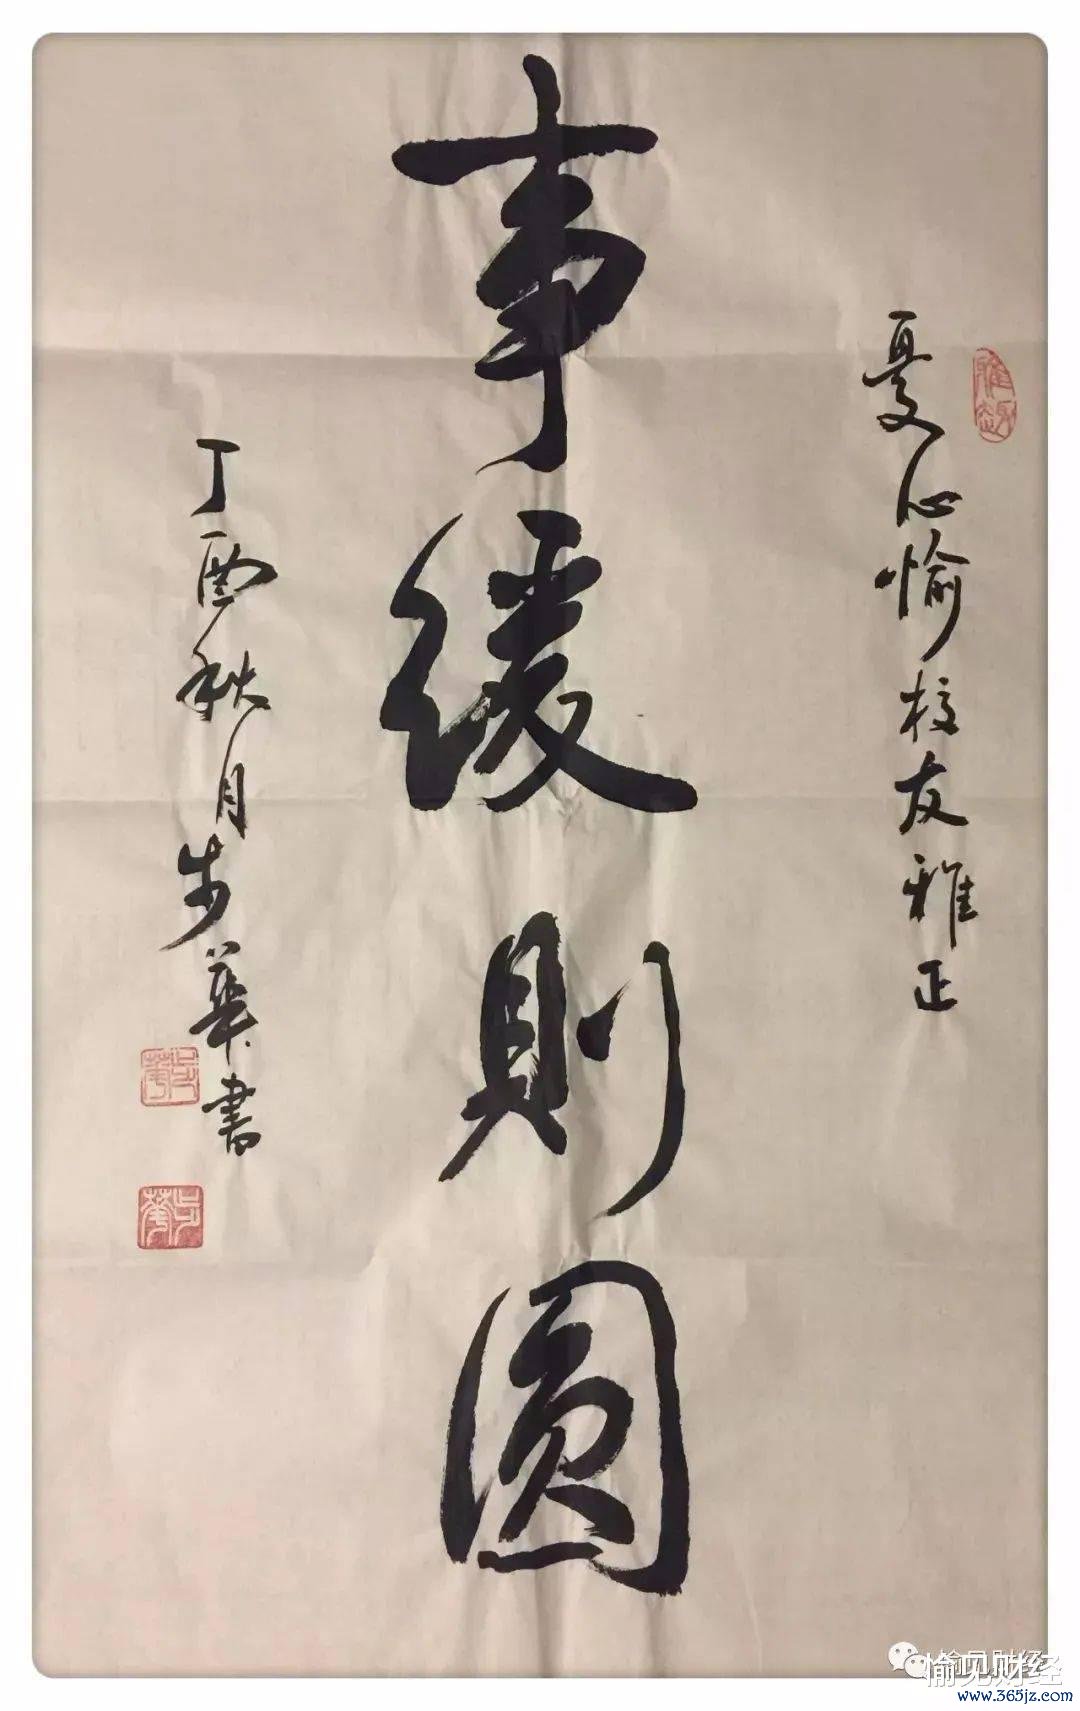 夏心愉校友雅正
事緩則圓
丁酉秋月步華書
愉见财经
www.365jz.com